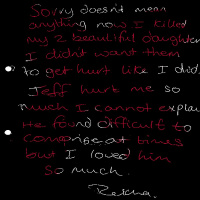 Sorry doesn't mean
anything now I killed
my 2 beautiful daughter
I didn't want them
to get hurt like I did.
Jeff hurt me so
much I cannot explai
He found difficult to
comprise at times
but I loved him
so much.
Rekha.